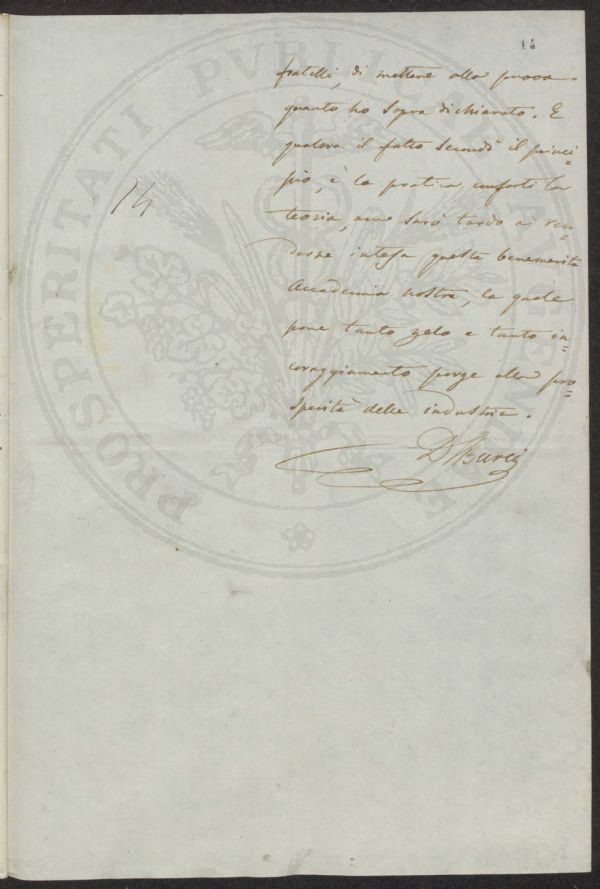 15
fratelli, di mettere alla prova
quanto ho sopra dichiarato. E
qualora il fatto secondi il princi=
pio, e la pratica conforti la
teoria, non sarò tardo a ren=
derne intesa questa benemerita
Accademia nostra, la quale
pone tanto zelo e tanto in=
coraggiamento porge alla pro=
sperità delle industrie.
14
PROSPERITATI PUBLICAE AUGENDAE